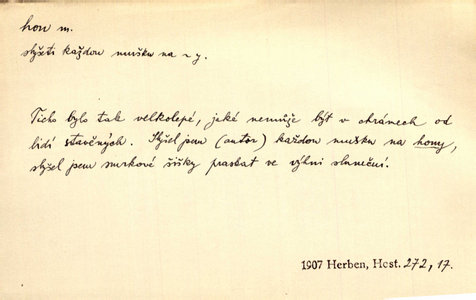 hon m.
slyšeti každou mušku na ~ y.
Ticho bylo tak velkolepé, jaké nemůže být v chrámech od
lidí stavěných. Slyšel jsem (autor) každou mušku na hony,
slyšel jsem smrkové šišky praskat ve výhni sluneční.
1907 Herben, Host. 272, 17.